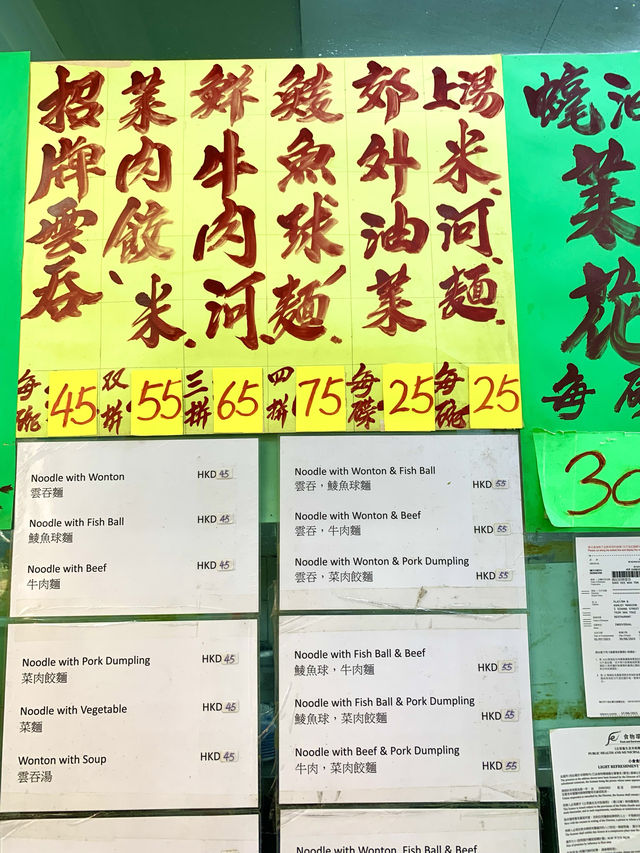 招牌雲吞
菜肉餃、米、
鮮牛肉河、
鯪魚球麵、
郊外油菜
上湯米、河、麵、
每碗 45
双拼 55
三拼 65
四拼 75
每碟 25
每碗 25
菜花
每
30
Noodle with Wonton HKD 45
雲吞麵
Noodle with Fish Ball HKD 45
鯪魚球麵
Noodle with Beef HKD 45
牛肉麵
Noodle with Wonton & Fish Ball
雲吞，鯪魚球麵 HKD 55
Noodle with Wonton & Beef
雲吞，牛肉麵 HKD 55
Noodle with Wonton & Pork Dumpling
雲吞，菜肉餃麵 HKD 55
Noodle with Pork Dumpling HKD 45
菜肉餃麵
Noodle with Vegetable HKD 45
菜麵
Wonton with Soup HKD 45
雲吞湯
Noodle with Fish Ball & Beef
鯪魚球，牛肉麵 HKD 55
Noodle with Fish Ball & Pork Dumpling
鯪魚球，菜肉餃麵 HKD 55
Noodle with Beef & Pork Dumpling
牛肉，菜肉餃麵 HKD 55
Noodle with Wonton, Fish Ball &
食物環
LIGHT REFRESHMENT